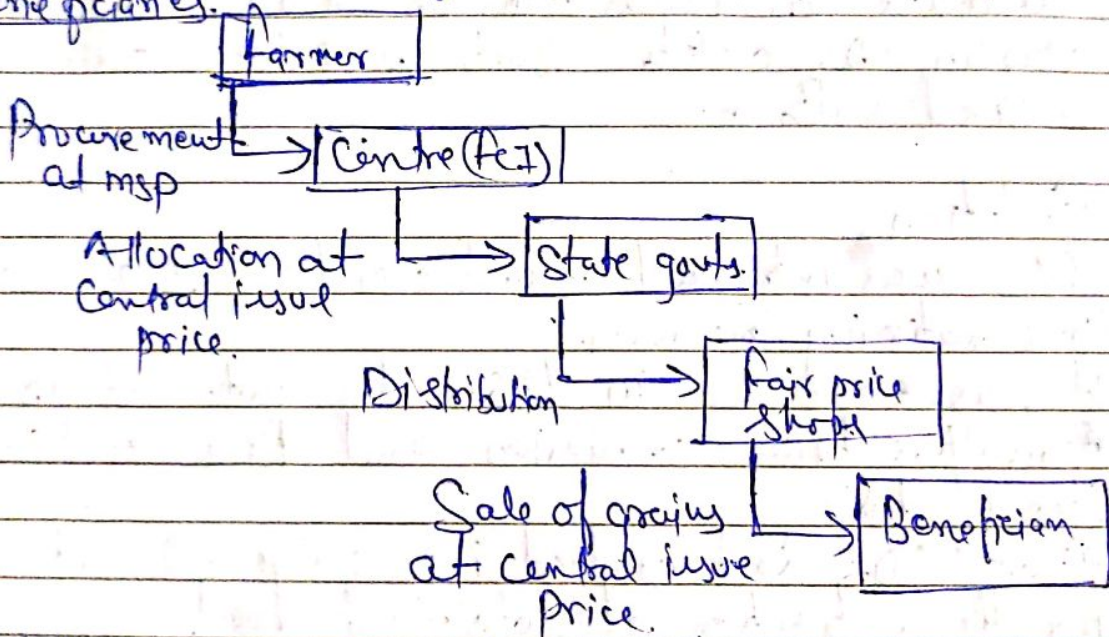 Farmer.
Procurement
at msp
Centre (FCI)
Allocation at
Central issue
price.
State govts.
Distribution
Fair price
Shops
Sale of grains
at central issue
Price.